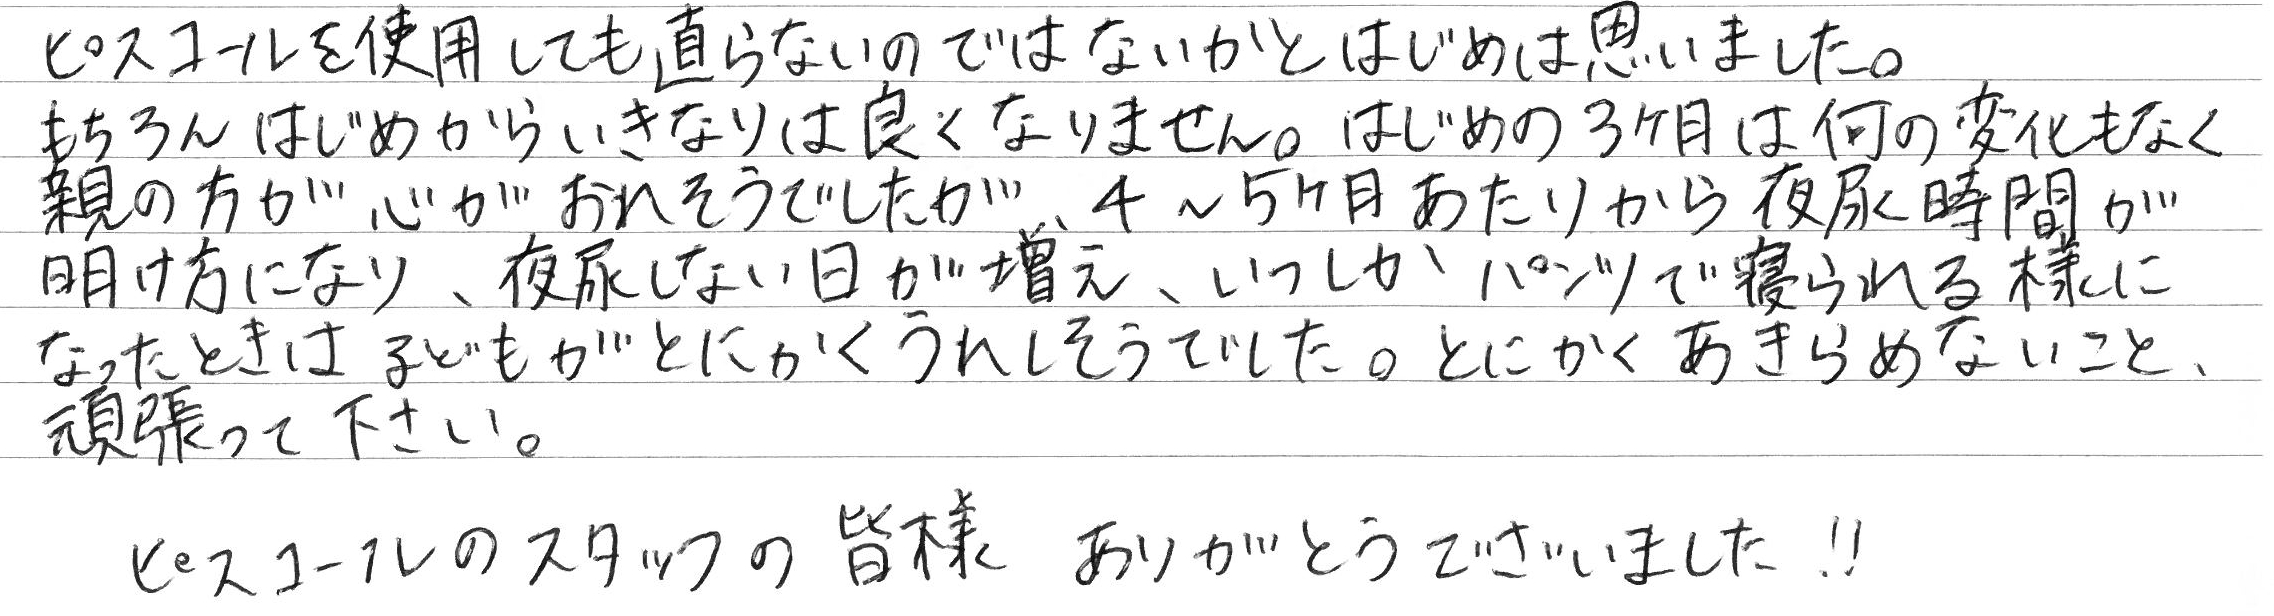 ピスコールを使用しても直らないのではないかとはじめは思いました。
もちろんはじめからいきなりは良くなりません。はじめの3ケ月は何の変化もなく
親の方が心がおれそうでしたが、4～5ケ月あたりから夜尿時間が
明け方になり、夜尿しない日が増え、いつしかパンツで寝られる様に
なったときは子どもがとにかくうれしそうでした。とにかくあきらめないこと、
頑張って下さい。
ピスコールのスタッフの皆様 ありがとうございました!!